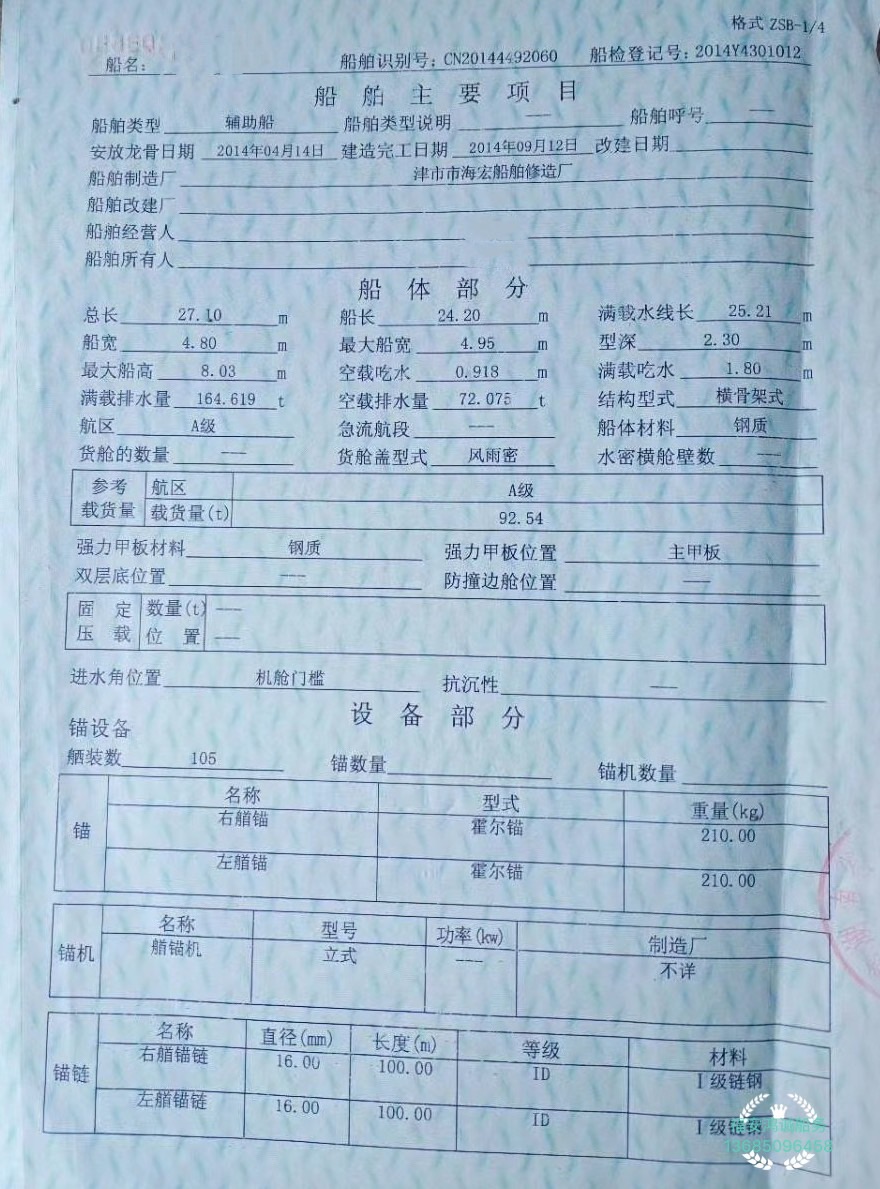 格式 ZSB-1/4
船名: 船舶识别号: CN20144492060 船检登记号: 2014Y4301012
船舶主要项目
船舶类型 辅助船 船舶类型说明 --- 船舶呼号 ---
安放龙骨日期 2014年04月14日 建造完工日期 2014年09月12日 改建日期
船舶制造厂 津市市海宏船舶修造厂
船舶改建厂
船舶经营人
船舶所有人
船体部分
总长 27.10 m 船长 24.20 m 满载水线长 25.21 m
船宽 4.80 m 最大船宽 4.95 m 型深 2.30 m
最大船高 8.03 m 空载吃水 0.918 m 满载吃水 1.80 m
满载排水量 164.619 t 空载排水量 72.075 t 结构型式 横骨架式
航区 A级 急流航段 --- 船体材料 钢质
货舱的数量 --- 货舱盖型式 风雨密 水密横舱壁数 ---
参考 航区 A级
载货量 载货量(t) 92.54
强力甲板材料 钢质 强力甲板位置 主甲板
双层底位置 --- 防撞边舱位置 ---
固定 数量(t) ---
压载 位置 ---
进水角位置 机舱门槛 抗沉性 ---
设备部分
锚设备
舾装数 105 锚数量 锚机数量
锚 名称 型式 重量(kg)
右艏锚 霍尔锚 210.00
左艏锚 霍尔锚 210.00
锚机 名称 型号 功率(kw) 制造厂
艏锚机 立式 --- 不详
锚链 名称 直径(mm) 长度(m) 等级 材料
右艏锚链 16.00 100.00 ID I级链钢
左艏锚链 16.00 100.00 ID I级链钢
13685096468